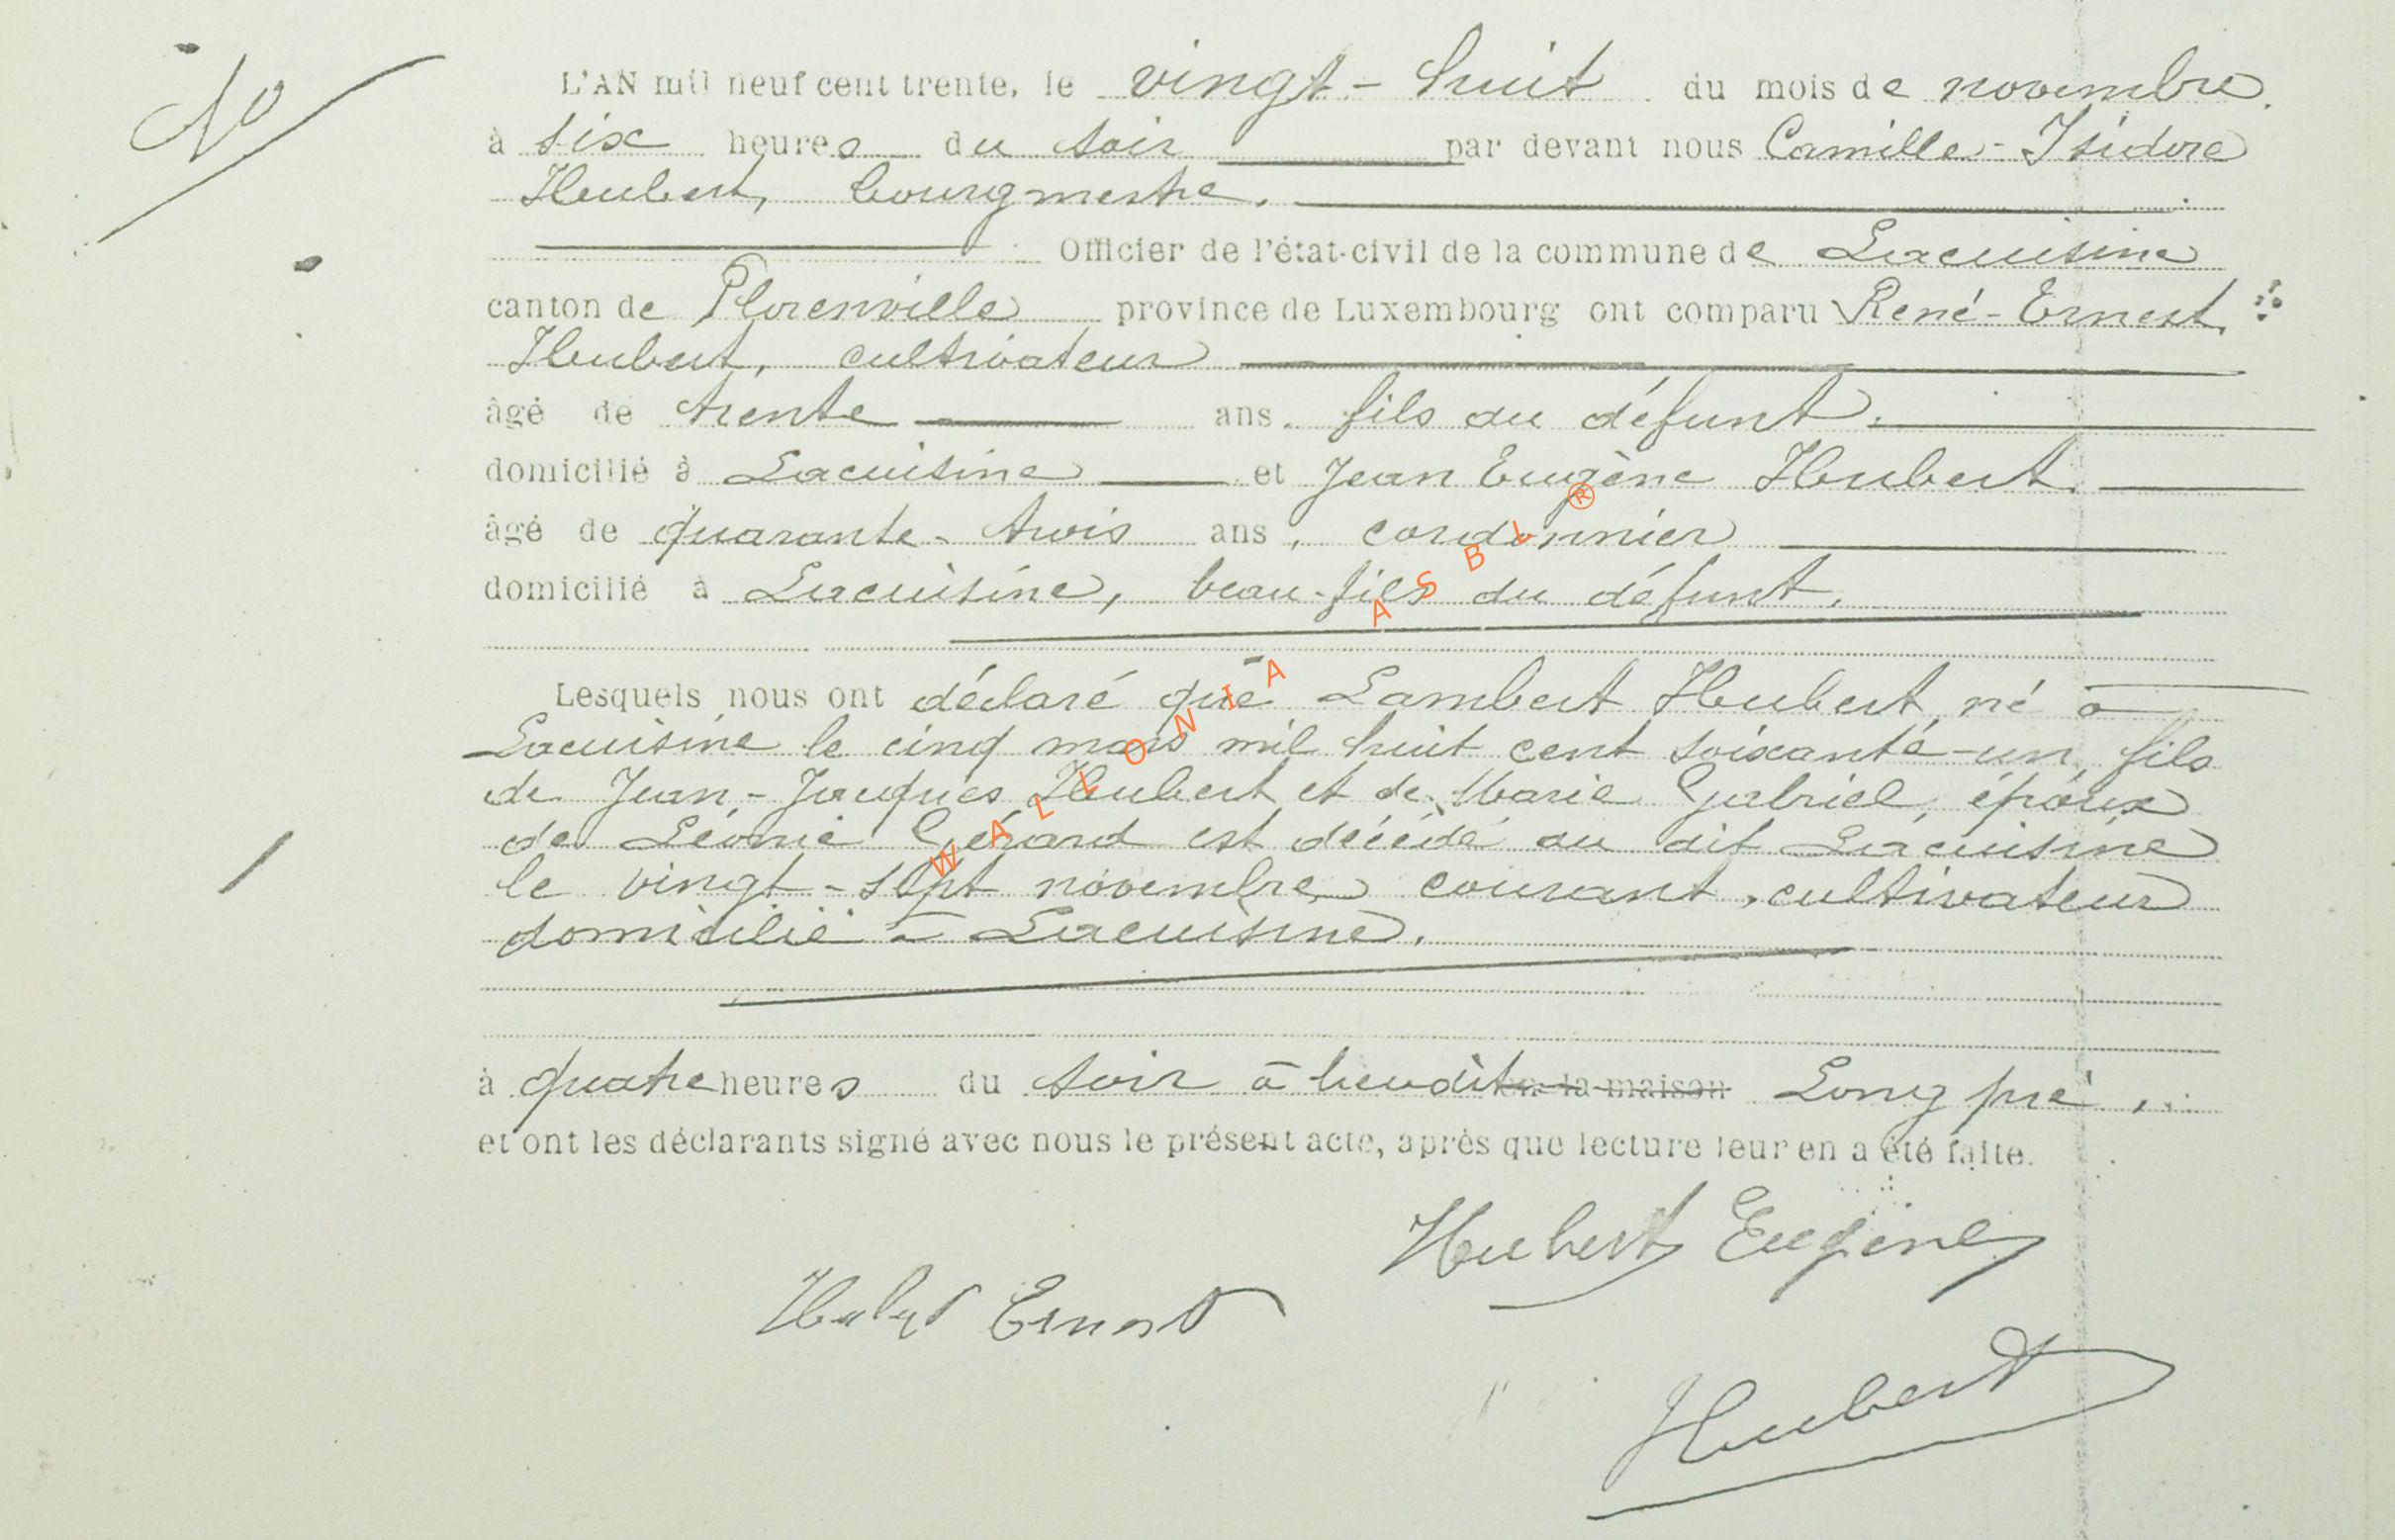 No
L'AN mil neuf cent trente, le vingt-huit du mois de novembre
à six heures du soir par devant nous Camille-Isidore
Hubert, bourgmestre.
Officier de l'état-civil de la commune de Lacuisine
canton de Florenville province de Luxembourg ont comparu René-Ernest
Hubert, cultivateur
âgé de trente ans. fils du défunt.
domicilié à Lacuisine et Jean Eugène Hubert.
âgé de quarante-trois ans, cordonnier
domicilié à Lacuisine, beau-fils du défunt.
Lesquels nous ont déclaré que Lambert Hubert, né à
Lacuisine le cinq mars mil huit cent soixante-un, fils
de Jean-Jacques Hubert et de Marie Gabriel, époux
de Léonie Gérard est décédé au dit Lacuisine
le vingt-sept novembre courant, cultivateur
domicilié à Lacuisine.
à quatre heures du soir à lieudit en la maison Long pré,
et ont les déclarants signé avec nous le présent acte, après que lecture leur en a été faite.
Hubert Eugène
Hubert Ernest
Hubert
WALLONIA ASBL ®